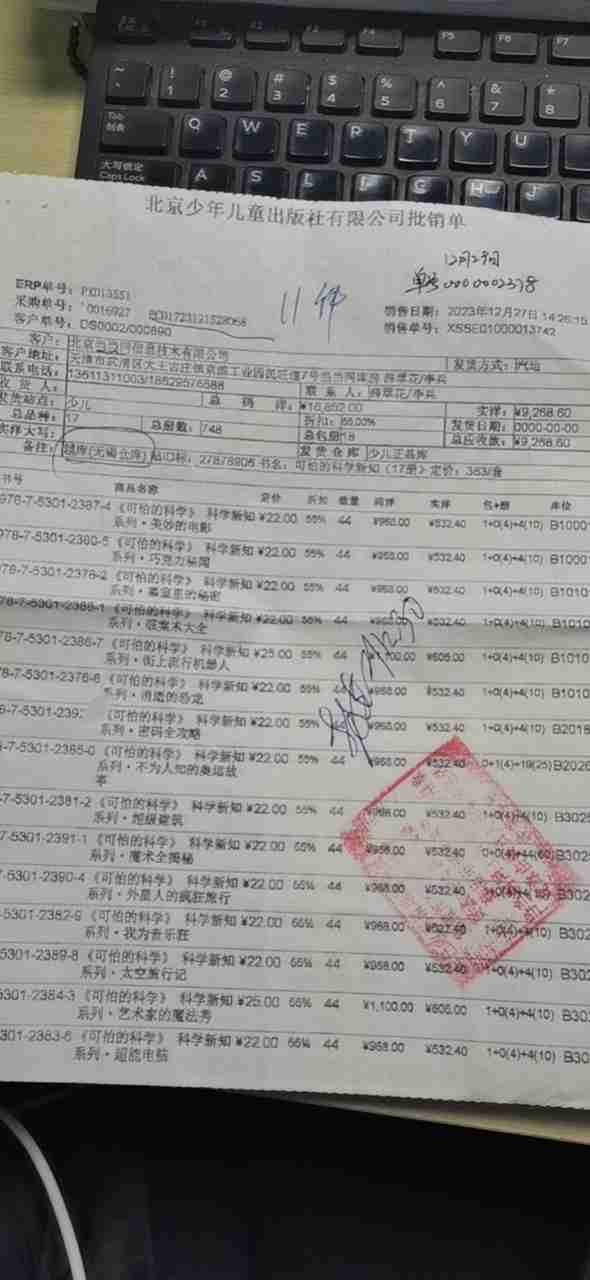 北京少年儿童出版社有限公司批销单
12月29日
单号0000002378
11件
ERP单号: PX013551
采购单号: 0016927
客户单号: DS0002/000890
销售日期: 2023年12月27日 14:26:15
销售单号: XSSE01000013742
客户: 北京当当网信息技术有限公司
发货方式: 汽运
客户地址:
联系电话: 13611311003/18629576588
收 货 人:
发货站点: 少儿
总 码 洋: ¥16,852.00
实洋: ¥9,268.60
总品种: 17
总册数: 748
折扣: 55.00%
发货日期: 0000-00-00
实洋大写:
总包册 18
总应收款: ¥9,268.60
备注: 越库(无锡仓库) 贴ID标: 27878905 书名: 可怕的科学新知(17册) 定价: 383/套
发 货 仓 库 少儿正品库
书号 商品名称 定价 折扣 数量 码洋 实洋 包+册 库位
978-7-5301-2387-4 《可怕的科学》 科学新知 ¥22.00 55% 44 ¥968.00 ¥532.40 1+0(4)+4(10) B1000
系列·美妙的电影
978-7-5301-2380-5 《可怕的科学》 科学新知 ¥22.00 55% 44 ¥968.00 ¥532.40 1+0(4)+4(10) B1000
系列·巧克力秘闻
978-7-5301-2378-2 《可怕的科学》 科学新知 ¥22.00 55% 44 ¥968.00 ¥532.40 1+0(4)+4(10) B1010
系列·墓室里的秘密
78-7-5301-2388-1 《可怕的科学》 科学新知 ¥22.00 55% 44 ¥532.40 1+0(4)+4(10) B1010
系列·破案术大全
78-7-5301-2386-7 《可怕的科学》 科学新知 ¥25.00 55% 44 ¥605.00 1+0(4)+4(10) B1010
系列·街上流行机器人
8-7-5301-2376-8 《可怕的科学》 科学新知 ¥22.00 55% 44 ¥968.00 ¥532.40 1+0(4)+4(10) B1010
系列·消逝的恐龙
8-7-5301-239 《可怕的科学》 科学新知 ¥22.00 55% 44 ¥968.00 ¥532.40 1+0(4)+4(10) B2018
系列·密码全攻略
8-7-5301-2385-0 《可怕的科学》 科学新知 ¥22.00 55% 44 ¥968.00 ¥532.40 0+1(4)+19(25) B2026
系列·不为人知的奥运故
事
-7-5301-2381-2 《可怕的科学》 科学新知 ¥22.00 55% 44 ¥968.00 ¥532.40 1+0(4)+4(10) B3025
系列·超级建筑
-7-5301-2391-1 《可怕的科学》 科学新知 ¥22.00 55% 44 ¥968.00 ¥532.40 0+0(4)+44(60) B302
系列·魔术全揭秘
7-5301-2390-4 《可怕的科学》 科学新知 ¥22.00 55% 44 ¥968.00 ¥532.40 1+0(4)+4(10) B302
系列·外星人的疯狂旅行
-5301-2382-9 《可怕的科学》 科学新知 ¥22.00 55% 44 ¥968.00 ¥532.40 1+0(4)+4(10) B302
系列·我为音乐狂
5301-2389-8 《可怕的科学》 科学新知 ¥22.00 55% 44 ¥968.00 ¥532.40 1+0(4)+4(10) B30
系列·太空旅行记
5301-2384-3 《可怕的科学》 科学新知 ¥25.00 55% 44 ¥1,100.00 ¥605.00 1+0(4)+4(10) B30
系列·艺术家的魔法秀
5301-2383-6 《可怕的科学》 科学新知 ¥22.00 55% 44 ¥968.00 ¥532.40 1+0(4)+4(10) B30
系列·超能电脑